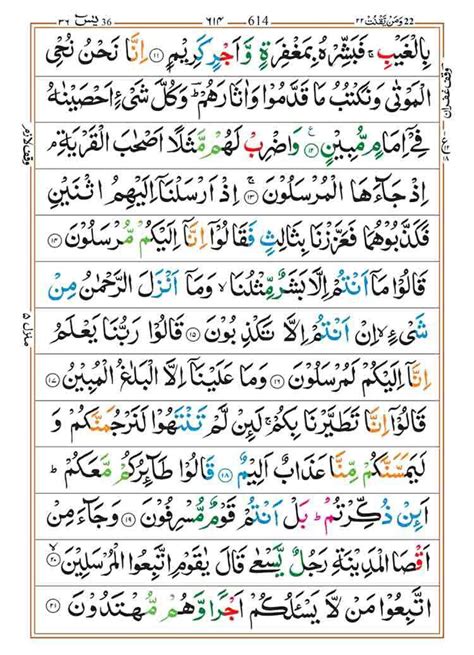 22 وَمَنْ يَّقْنُتْ ٢٢ 614 ٦١٤ 36 يٰسٓ ٣٦
بِالْغَيْبِ ۚ فَبَشِّرْهُ بِمَغْفِرَةٍ وَّاَجْرٍ كَرِيْمٍ ﴿١١﴾ اِنَّا نَحْنُ نُحْيِ
الْمَوْتٰى وَنَكْتُبُ مَا قَدَّمُوْا وَاٰثَارَهُمْ ؕ وَكُلَّ شَيْءٍ اَحْصَيْنٰهُ
فِيْۤ اِمَامٍ مُّبِيْنٍ ﴿١٢﴾ وَاضْرِبْ لَهُمْ مَّثَلًا اَصْحٰبَ الْقَرْيَةِ ۘ
اِذْ جَآءَهَا الْمُرْسَلُوْنَ ﴿١٣﴾ اِذْ اَرْسَلْنَاۤ اِلَيْهِمُ اثْنَيْنِ
فَكَذَّبُوْهُمَا فَعَزَّزْنَا بِثَالِثٍ فَقَالُوْۤا اِنَّاۤ اِلَيْكُمْ مُّرْسَلُوْنَ ﴿١٤﴾
قَالُوْا مَاۤ اَنْتُمْ اِلَّا بَشَرٌ مِّثْلُنَا ۙ وَمَاۤ اَنْزَلَ الرَّحْمٰنُ مِنْ
شَيْءٍ ۙ اِنْ اَنْتُمْ اِلَّا تَكْذِبُوْنَ ﴿١٥﴾ قَالُوْا رَبُّنَا يَعْلَمُ
اِنَّاۤ اِلَيْكُمْ لَمُرْسَلُوْنَ ﴿١٦﴾ وَمَا عَلَيْنَاۤ اِلَّا الْبَلٰغُ الْمُبِيْنُ ﴿١٧﴾
قَالُوْۤا اِنَّا تَطَيَّرْنَا بِكُمْ ۚ لَئِنْ لَّمْ تَنْتَهُوْا لَنَرْجُمَنَّكُمْ وَ
لَيَمَسَّنَّكُمْ مِّنَّا عَذَابٌ اَلِيْمٌ ﴿١٨﴾ قَالُوْا طَآئِرُكُمْ مَّعَكُمْ ؕ
اَئِنْ ذُكِّرْتُمْ ؕ بَلْ اَنْتُمْ قَوْمٌ مُّسْرِفُوْنَ ﴿١٩﴾ وَجَآءَ مِنْ
اَقْصَا الْمَدِيْنَةِ رَجُلٌ يَّسْعٰى قَالَ يٰقَوْمِ اتَّبِعُوا الْمُرْسَلِيْنَ ﴿٢٠﴾
اتَّبِعُوْا مَنْ لَّا يَسْئَلُكُمْ اَجْرًا وَّهُمْ مُّهْتَدُوْنَ ﴿٢١﴾
وقف غفران
وقف لازم
منزل ٥